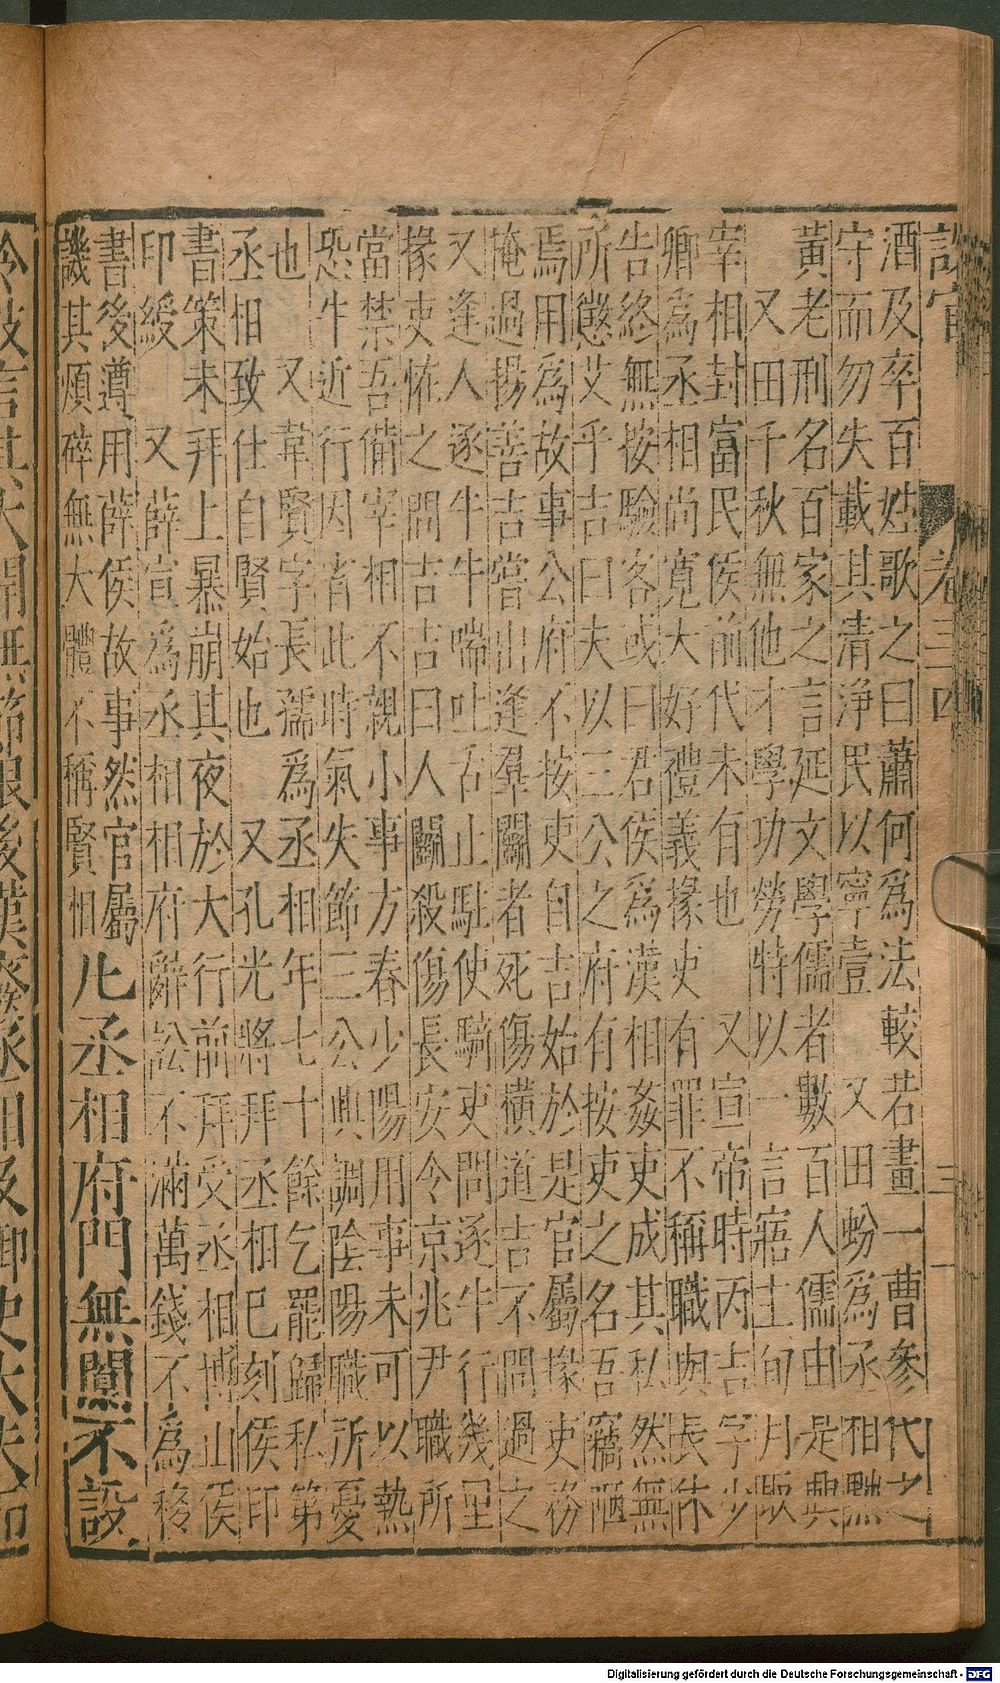 設官 卷三四 三一
酒及卒百姓歌之曰蕭何為法較若畫一曹參代之
守而勿失載其清淨民以寧壹 又田蚡為丞相黜
黃老刑名百家之言延文學儒者數百人儒由是興
又田千秋無他才學功勞特以一言寤主旬月取
宰相封富民侯前代未有也 又宣帝時丙吉字少
卿為丞相尚寬大好禮義掾史有罪不稱職與長休
告終無按驗客或曰君侯為漢相姦吏成其私然無
所懲艾乎吉曰夫以三公之府有按吏之名吾竊陋
焉用為故事公府不按吏自吉始於是官屬掾吏務
掩過揚善吉嘗出逢羣鬬者死傷橫道吉不問過之
又逢人逐牛牛喘吐舌止駐使騎吏問逐牛行幾里
掾吏恠之問吉吉曰人鬬殺傷長安令京兆尹職所
當禁吾備宰相不親小事方春少陽用事未可以熱
恐牛近行因省此時氣失節三公典調陰陽職所憂
也 又韋賢字長孺為丞相年七十餘乞罷歸私第
丞相致仕自賢始也 又孔光將拜丞相已刻侯印
書策未拜上暴崩其夜於大行前拜受丞相博山侯
印綬 又薛宣為丞相相府辭訟不滿萬錢不為移
書後遵用薛侯故事然官屬
譏其煩碎無大體不稱賢相
凡丞相府門無闑不設
鈴鼓言其大開無節限後漢丞相及御史大夫
Digitalisierung gefördert durch die Deutsche Forschungsgemeinschaft - DFG